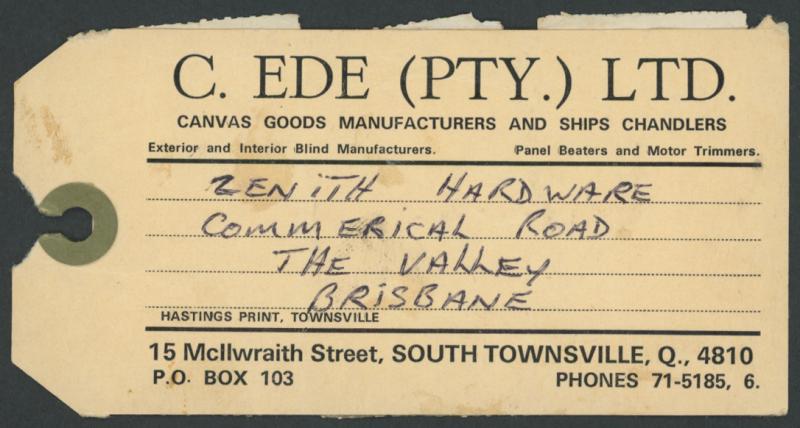 C. EDE (PTY.) LTD.
CANVAS GOODS MANUFACTURERS AND SHIPS CHANDLERS
Exterior and Interior Blind Manufacturers. Panel Beaters and Motor Trimmers.
ZENITH HARDWARE
COMMERICAL ROAD
THE VALLEY
BRISBANE
HASTINGS PRINT, TOWNSVILLE
15 McIlwraith Street, SOUTH TOWNSVILLE, Q., 4810
P.O. BOX 103 PHONES 71-5185, 6.